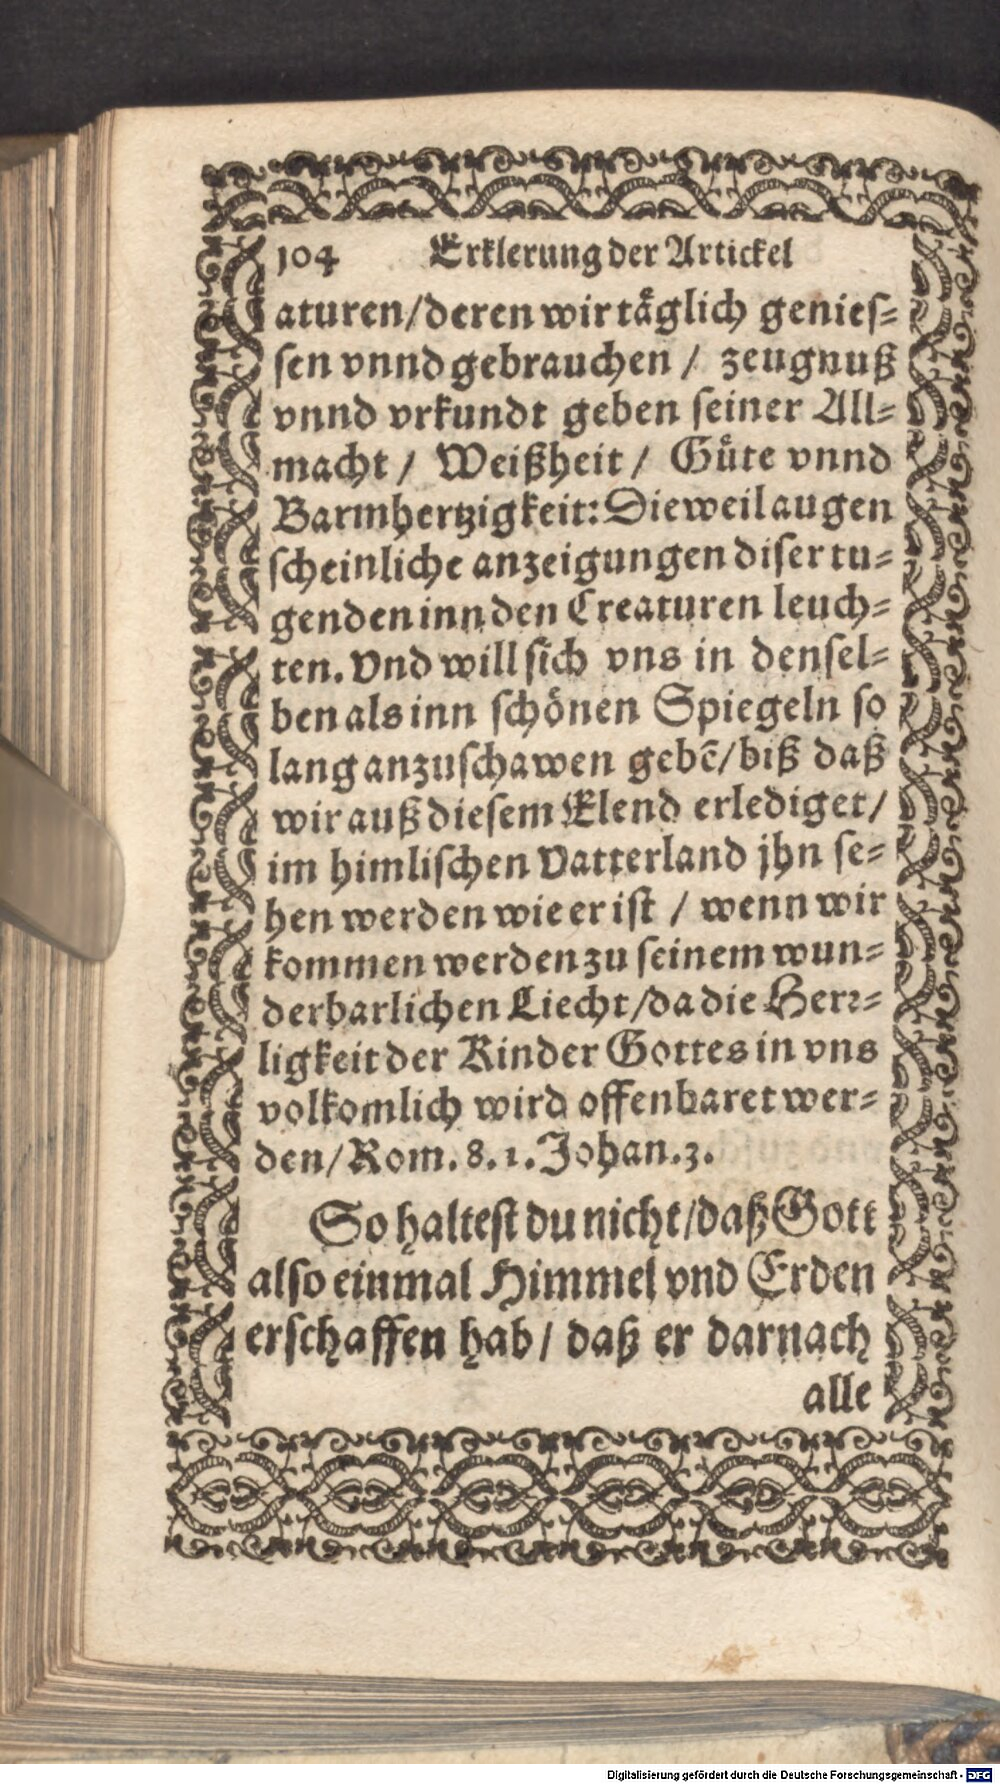 104 Erklerung der Artickel
aturen/deren wir taͤglich genies⸗
sen vnnd gebrauchen / zeugnuß
vnnd vrkundt geben seiner All⸗
macht / Weißheit / Guͤte vnnd
Barmhertzigkeit: Dieweil augen
scheinliche anzeigungen diser tu⸗
genden inn den Creaturen leuch⸗
ten. Vnd will sich vns in densel⸗
ben als inn schönen Spiegeln so
lang anzuschawen gebē/biß daß
wir auß diesem Elend erlediget/
im himlischen Vatterland jhn se⸗
hen werden wie er ist / wenn wir
kommen werden zu seinem wun⸗
derbarlichen Liecht/da die Herr⸗
ligkeit der Kinder Gottes in vns
volkomlich wird offenbaret wer⸗
den/Rom. 8. 1. Johan. 3.
So haltest du nicht/daß Gott
also einmal Himmel vnd Erden
erschaffen hab / daß er darnach
alle
Digitalisierung gefördert durch die Deutsche Forschungsgemeinschaft - DFG